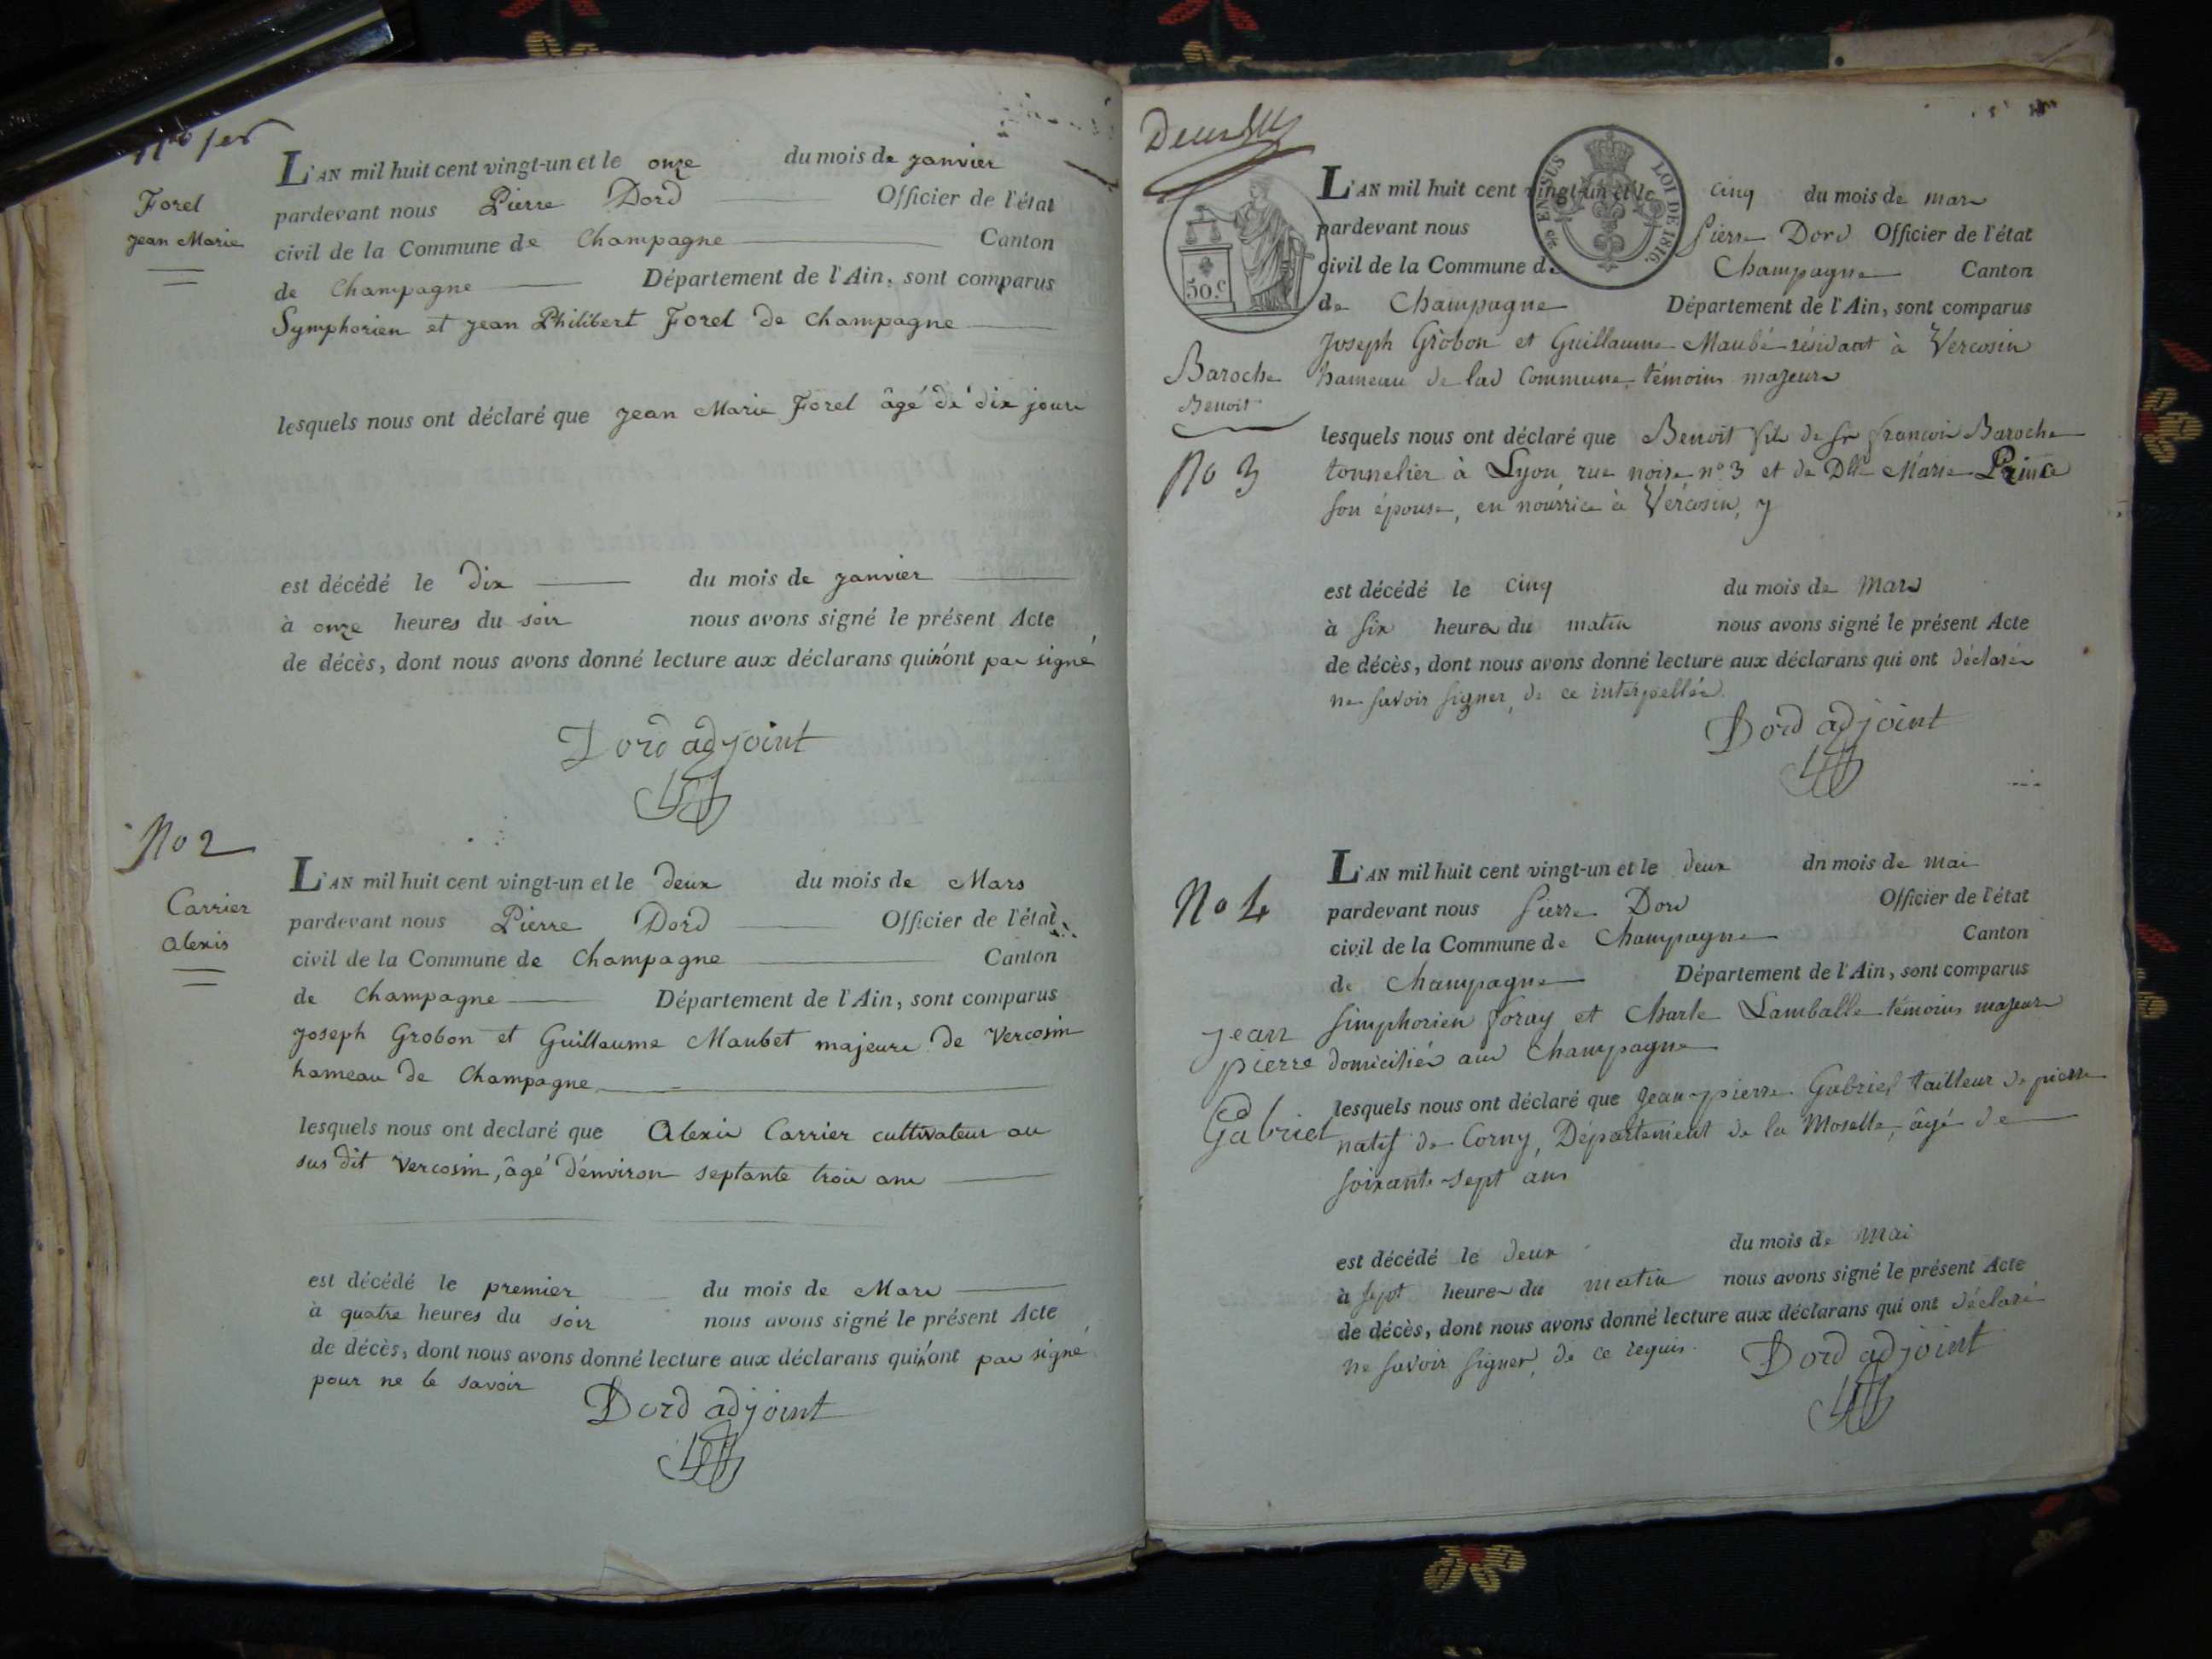 No 1er
Forel
Jean Marie
L'AN mil huit cent vingt-un et le onze du mois de janvier
pardevant nous Pierre Dord Officier de l'état
civil de la Commune de Champagne Canton
de Champagne Département de l'Ain, sont comparus
Symphorien et jean Philibert Forel de champagne
lesquels nous ont déclaré que jean Marie Forel âgé de dix jours
est décédé le dix du mois de janvier
à onze heures du soir nous avons signé le présent Acte
de décès, dont nous avons donné lecture aux déclarans qui n'ont pas signé
Dord adjoint
No 2
Carrier
alexis
L'AN mil huit cent vingt-un et le deux du mois de Mars
pardevant nous Pierre Dord Officier de l'état
civil de la Commune de Champagne Canton
de Champagne Département de l'Ain, sont comparus
joseph Grobon et Guillaume Maubet majeurs de Vercosin
hameau de Champagne
lesquels nous ont declaré que Alexis Carrier cultivateur au
sus dit Vercosin, âgé d'environ septante trois ans
est décédé le premier du mois de Mars
à quatre heures du soir nous avons signé le présent Acte
de décès, dont nous avons donné lecture aux déclarans qui n'ont pas signé
pour ne le savoir
Dord adjoint
50 c.
EN SUS
LOI DE 1816.
Baroche
Benoit
No 3
L'AN mil huit cent vingt-un et le cinq du mois de mars
pardevant nous Pierre Dord Officier de l'état
civil de la Commune de Champagne Canton
de Champagne Département de l'Ain, sont comparus
Joseph Grobon et Guillaume Maubé résidant à Vercosin
hameau de lad Commune, témoins majeurs
lesquels nous ont déclaré que Benoit fils de Sr françois Baroche
tonnelier à Lyon, rue noire n° 3 et de Dlle Marie Prince
son épouse, en nourrice à Vercosin, y
est décédé le cinq du mois de Mars
à six heures du matin nous avons signé le présent Acte
de décès, dont nous avons donné lecture aux déclarans qui ont déclarés
ne savoir signer, de ce interpellés.
Dord adjoint
No 4
Jean
pierre
Gabriel
L'AN mil huit cent vingt-un et le deux dn mois de mai
pardevant nous Pierre Dord Officier de l'état
civil de la Commune de Champagne Canton
de Champagne Département de l'Ain, sont comparus
simphorien foray et Charle Lamballe témoins majeurs
domiciliés aud Champagne
lesquels nous ont déclaré que Jean-pierre Gabriel tailleur de pierre
natif de Corny, Département de la Moselle, âgé de
soixante-sept ans
est décédé le deux du mois de mai
à sept heures du matin nous avons signé le présent Acte
de décès, dont nous avons donné lecture aux déclarans qui ont déclaré
ne savoir signer, de ce requis.
Dord adjoint